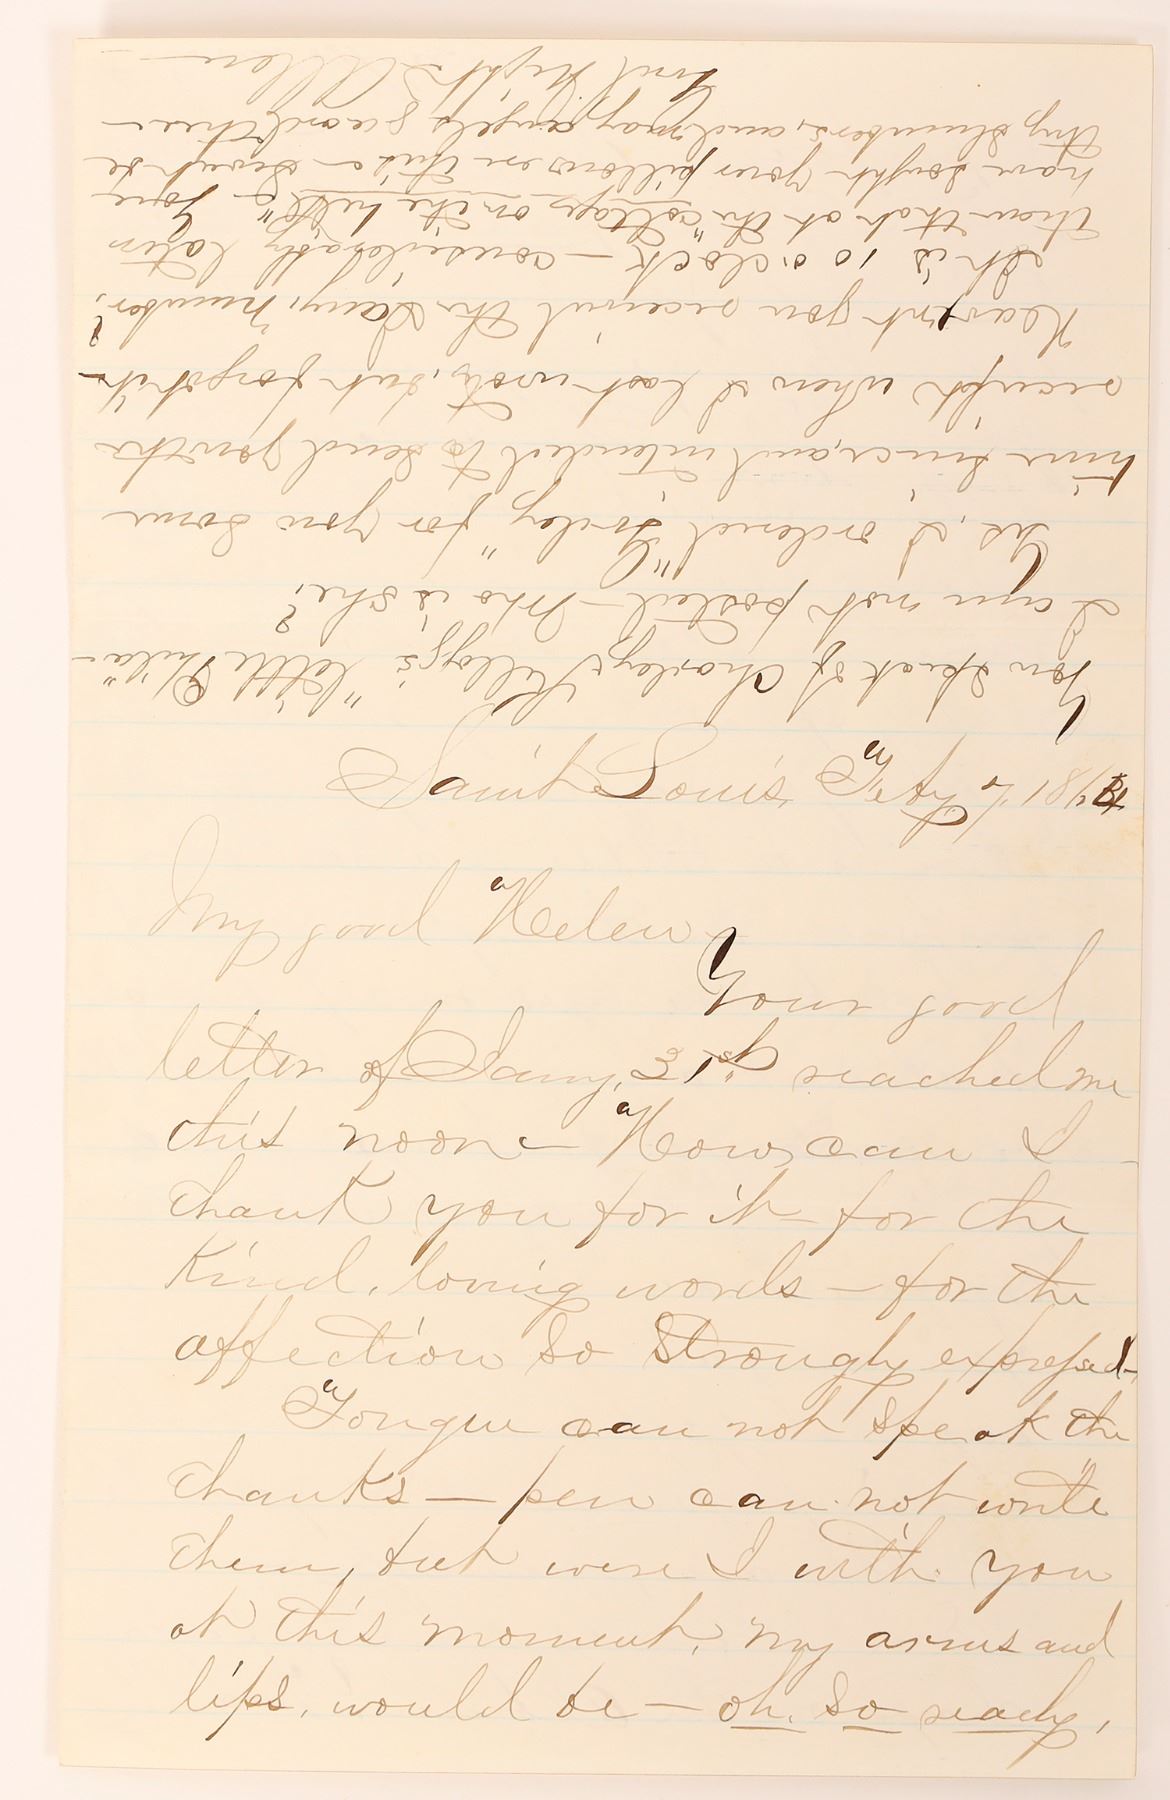 Saint Louis Feb'y 6" 187
My good Helen
Your good
letter of Jany. 31st. reached me
this noon — How can I
thank you for it — for the
kind, loving words — for the
affection so strongly expressed —
Tongue can not speak the
thanks — pen can not write
them, but were I with you
at this moment, my arms and
lips, would be — oh, so ready,
You speak of Charley Kellogg's "little Phila"—
I am not posted — Who is she?
Yes, I ordered "Godey" for you some
time since, and intended to send you the
receipt when I last wrote, but forgot it —
Hav'nt you received the Jany, number?
It is 10 o'clock — considerably later
than that at the "cottage on the hill" — You
have sought your pillows ere this —
thy slumbers, and may angels guard thee —
Good Night Allen —